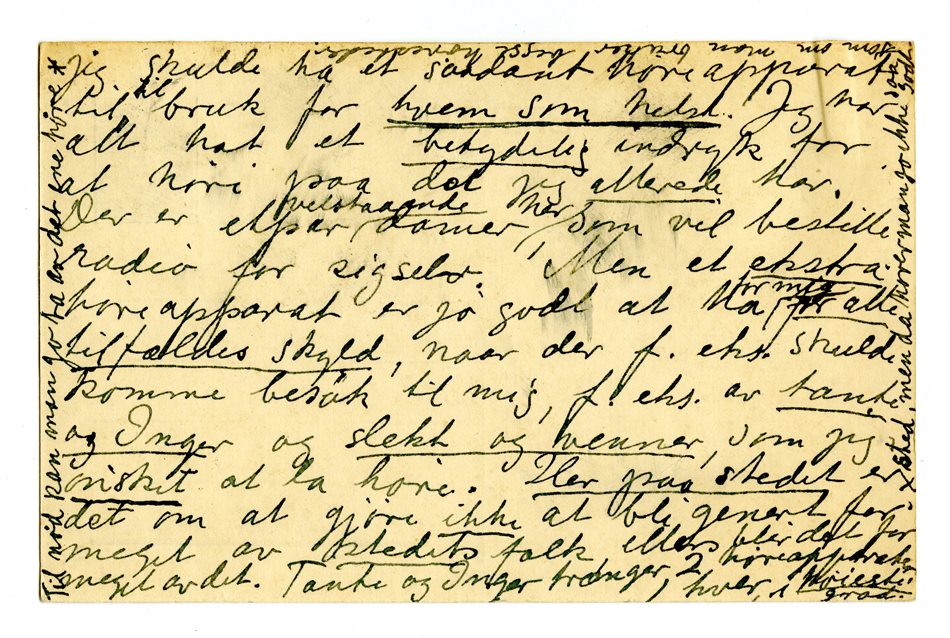 jeg skulde ha et saadant höreapparat
til, til bruk for hvem som helst. Jeg har
alt hat et betydelig indryk for
at höre paa det jeg allerede har.
Der er etpar velstaaende damer her, som vil bestille
radio for sigselv. Men et ekstra
höreapparat er jo godt at ha for mig for alle
tilfældes skyld, naar der f. eks. skulde
komme besök til mig, f. eks. av tante
og Inger og slekt og venner, som jeg
önsket at la höre. Her paa stedet er
det om at gjöre ikke at bli generet for
meget av stedets folk, ellers blir det for
meget av det. Tante og Inger trænger 2 höreapparater,
hver, i höieste
grad.
Til nöd kan man jo ta av det ene höre *
x sted, men da hörer man jo ikke saa godt
som om man bruker begge